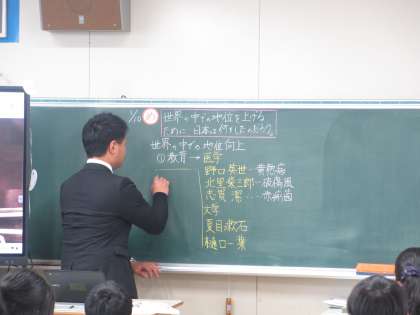 1/10 め 世界の中での地位を上げる
ために日本は何をしたのだろう。
世界の中での地位向上
①教育→医学
野口英世…黄熱病
北里柴三郎…破傷風
志賀潔…赤痢菌
文学
夏目漱石
樋口一葉